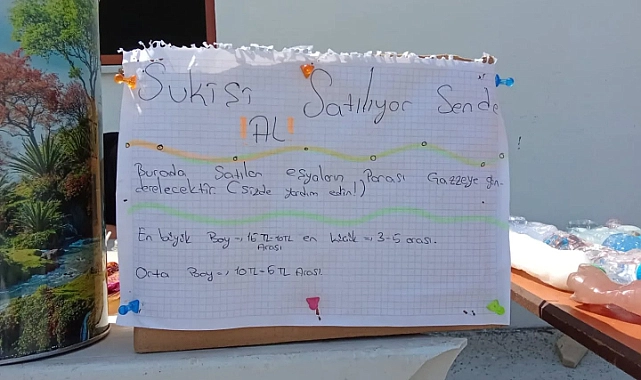 Sukişi Satılıyor Sende
!AL!
Burada Satılan eşyaların Parası Gazzeye gön-
derelecektir (sizde yardım edin!)
En büyük Boy =, 15 TL-10TL en küçük =, 3-5 arası.
Arası
Orta Boy =, 10TL-5TL Arası